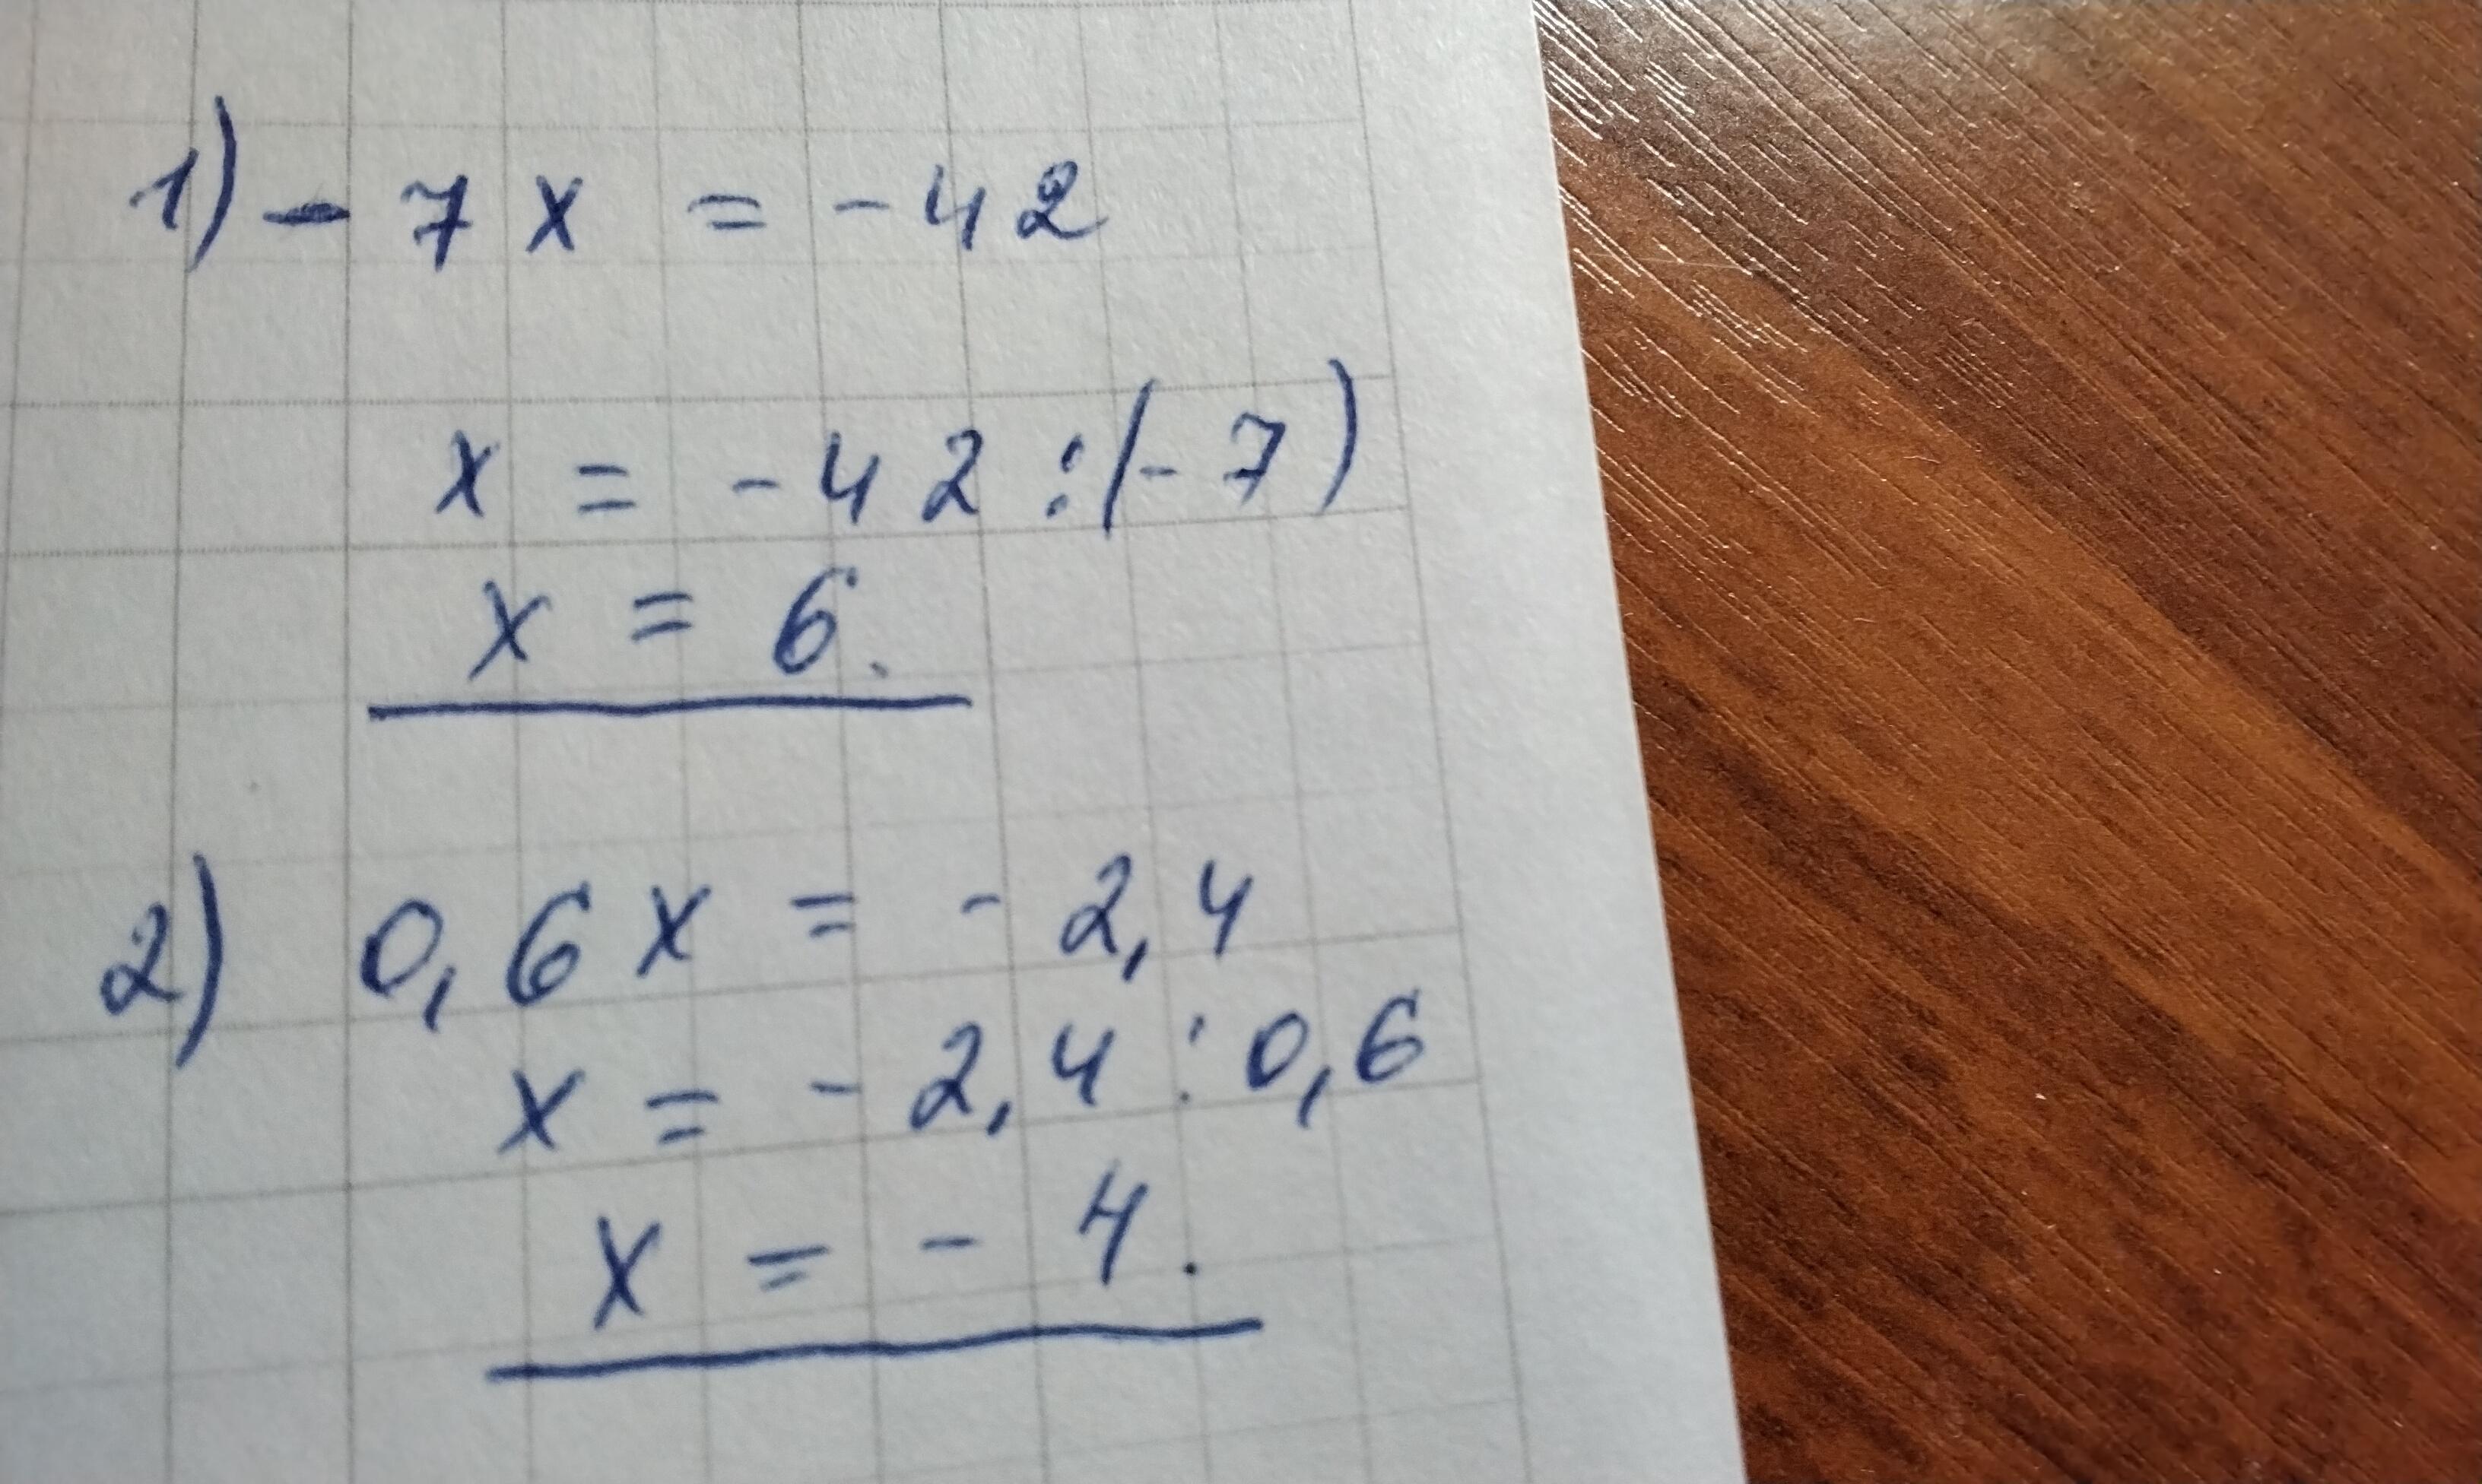 1) - 7x = -42
x = -42 : (-7)
x = 6.
2) 0,6x = - 2,4
x = - 2,4 : 0,6
x = - 4.